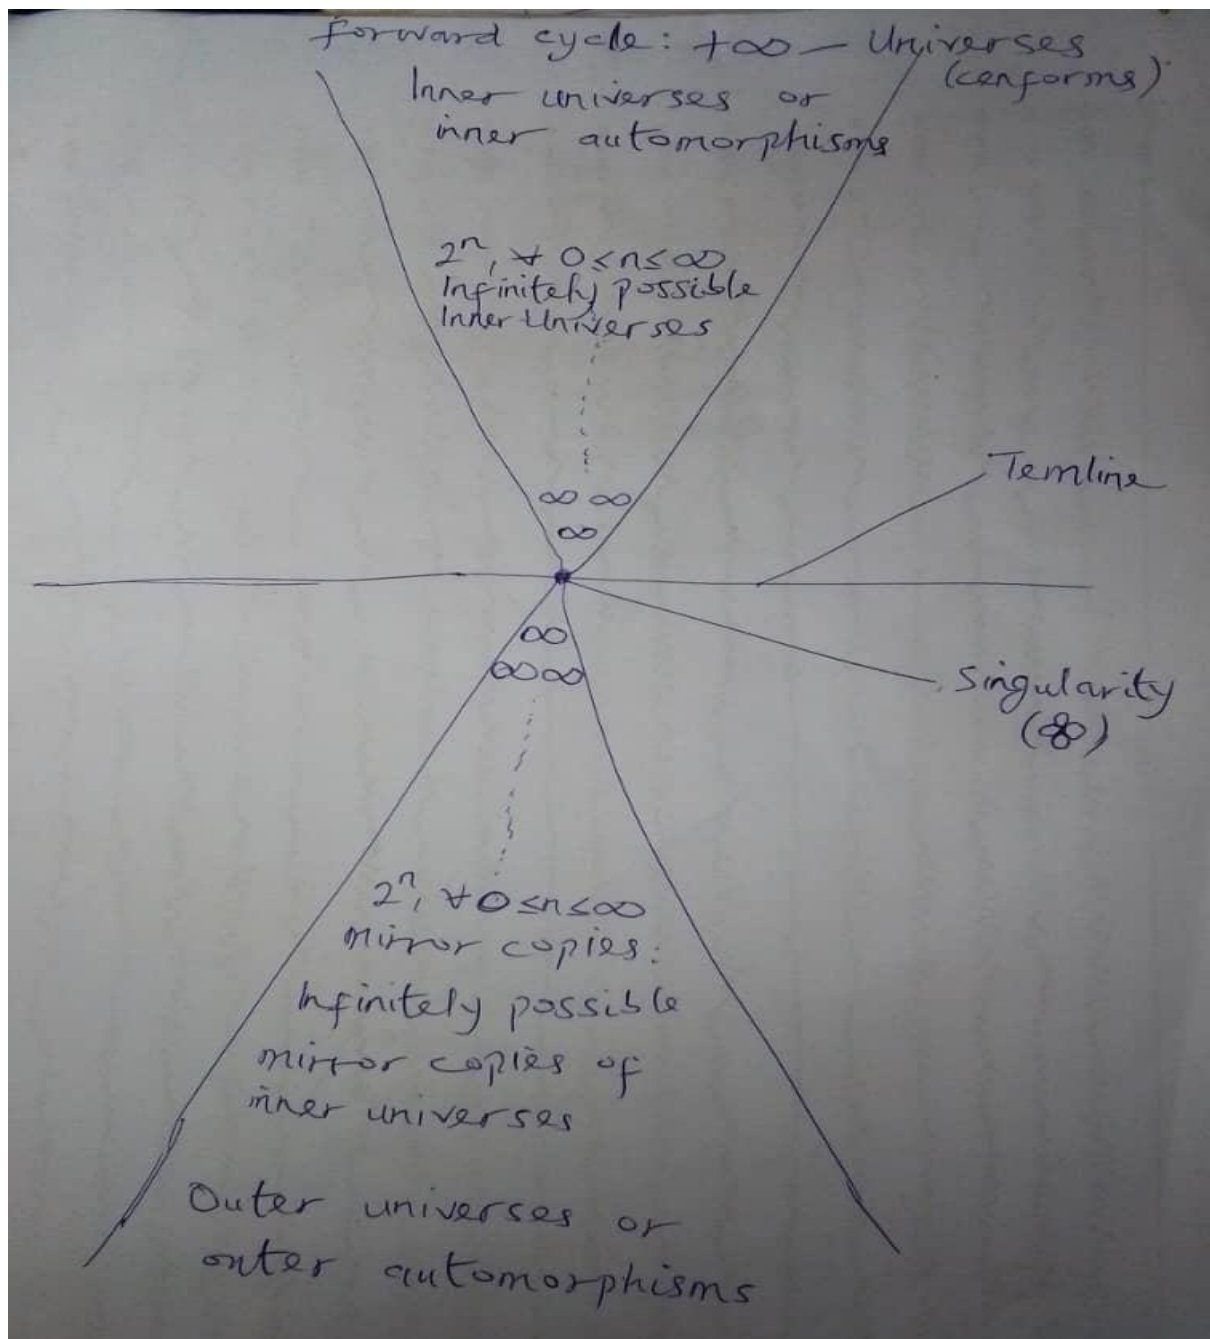 forward cycle: +∞ – Universes
(cenforms)
Inner universes or
inner automorphisms
2ⁿ, ∀ 0≤n≤∞
Infinitely possible
Inner Universes
∞ ∞
∞
Temline
∞
∞ ∞
Singularity
2ⁿ, ∀ 0≤n≤∞
mirror copies:
Infinitely possible
mirror copies of
inner universes
Outer universes or
outer automorphisms